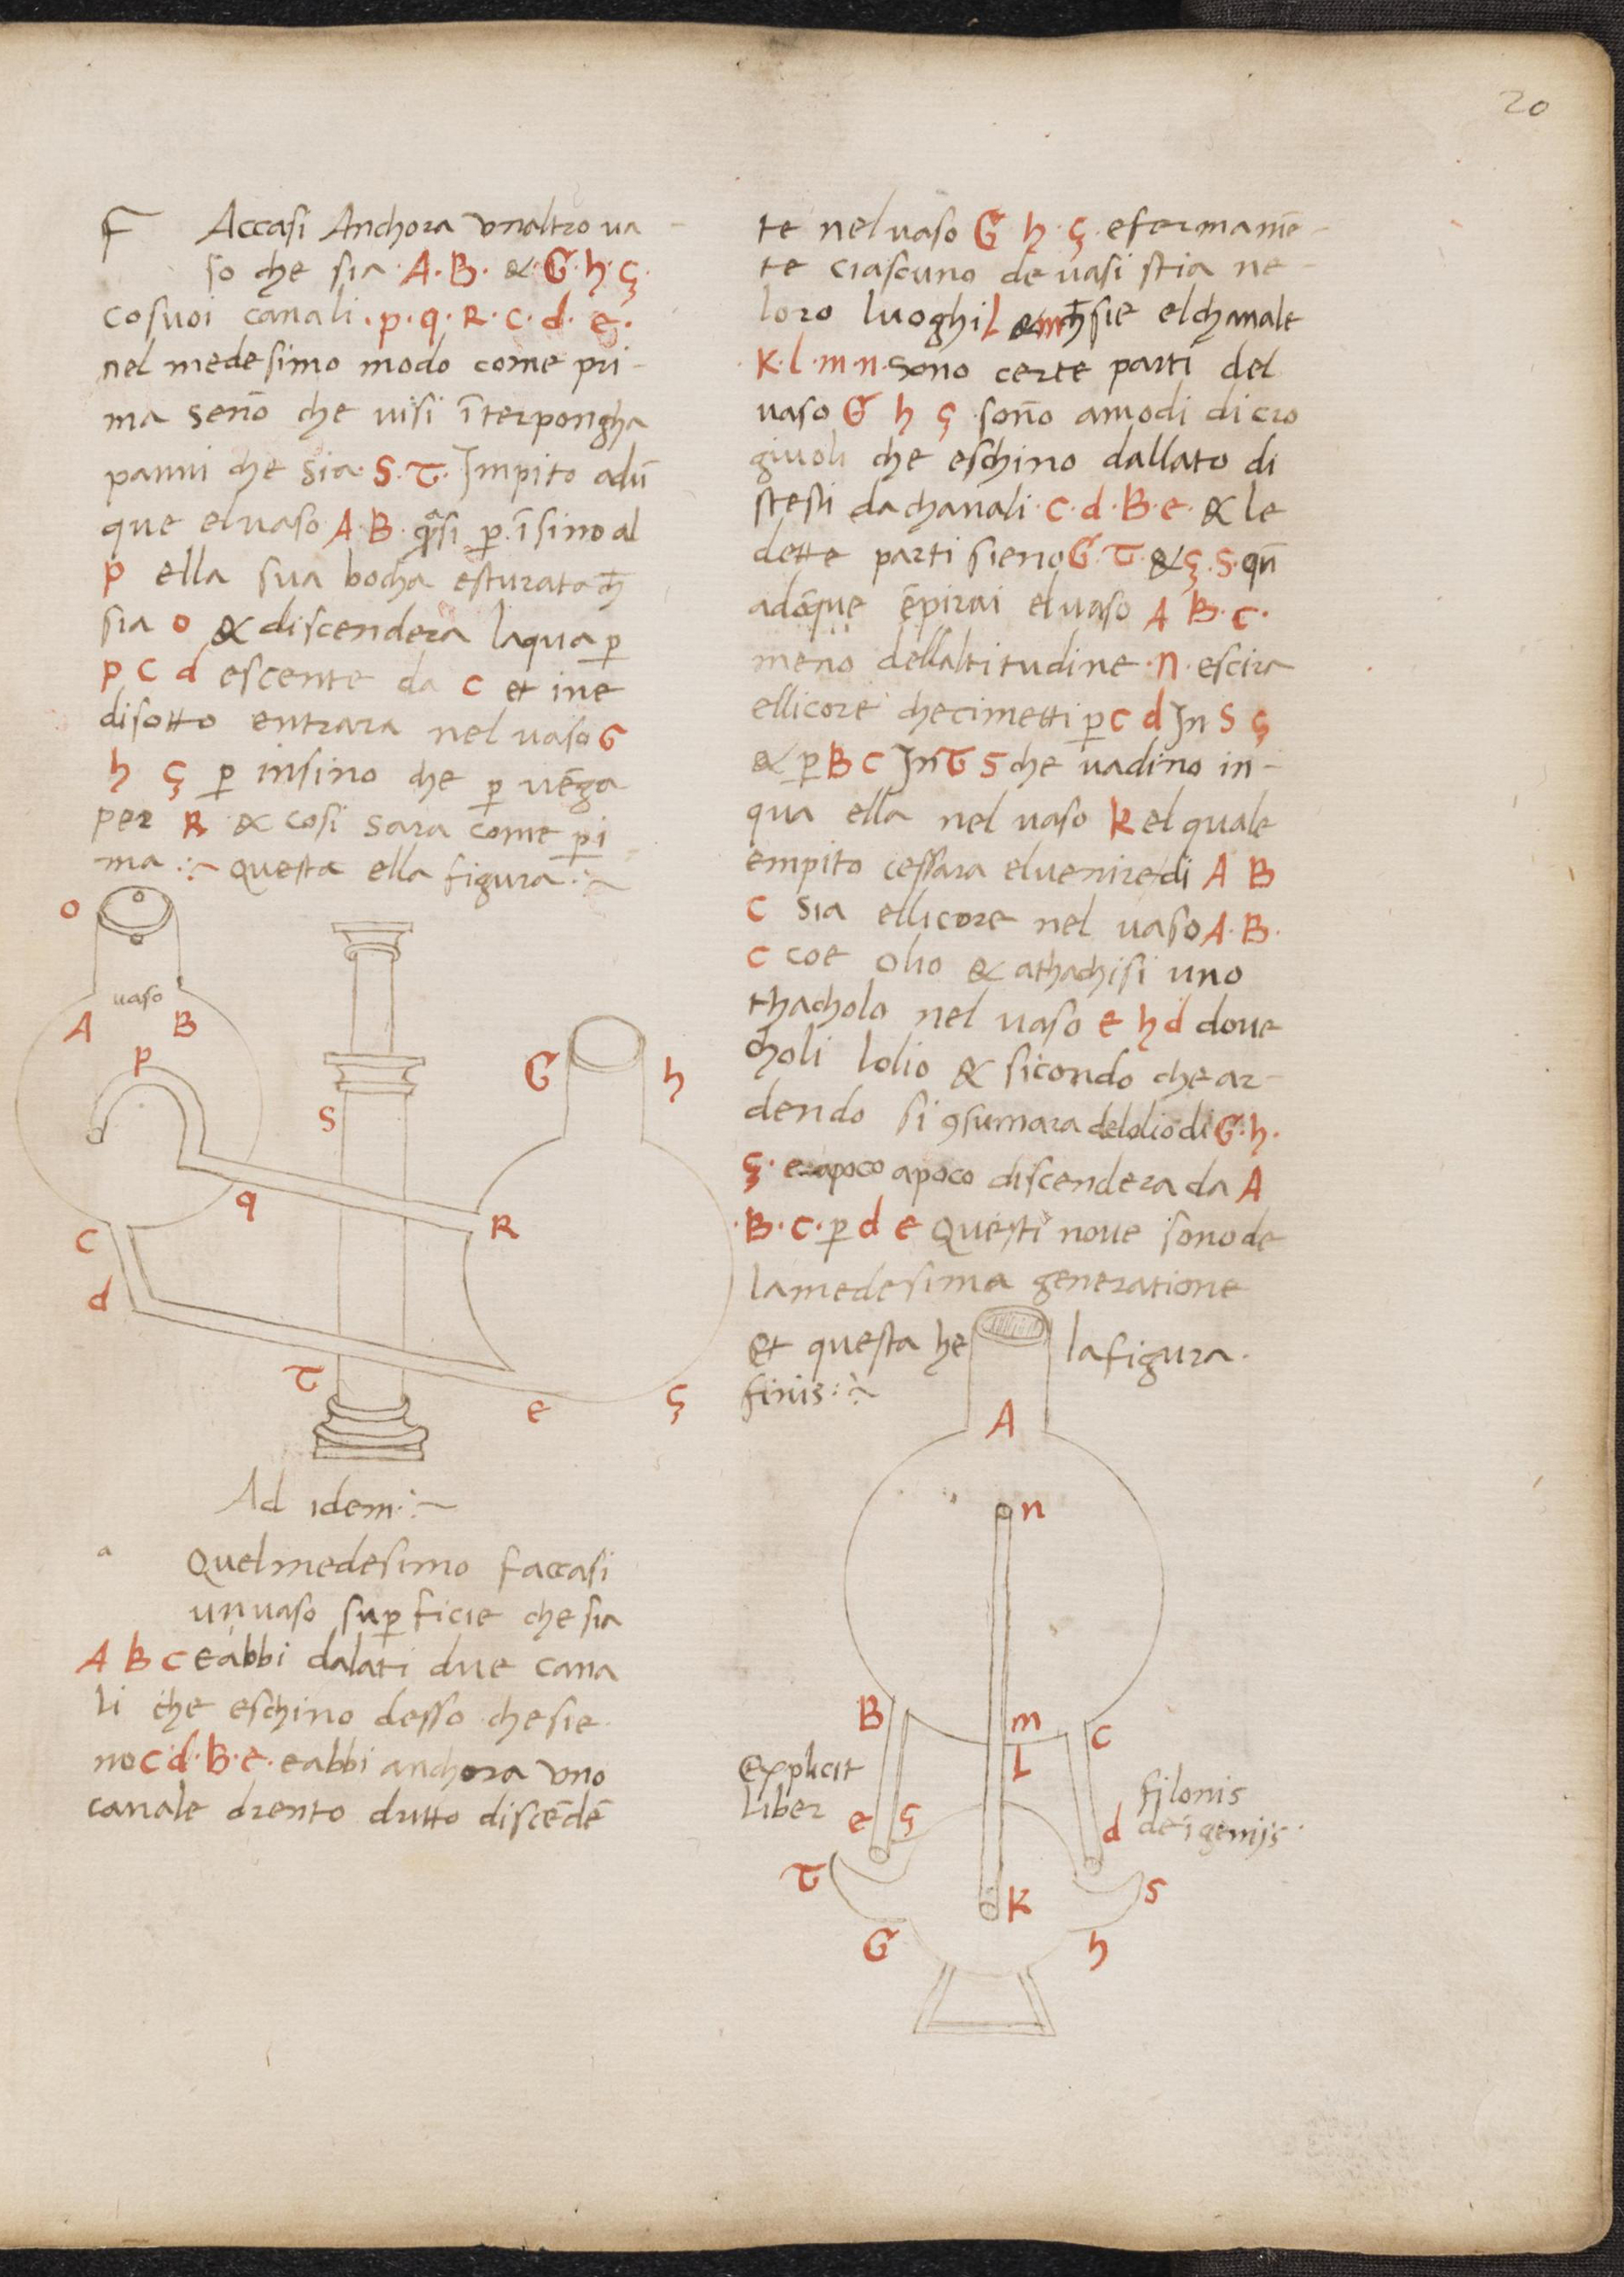 20
F Accasi Anchora unaltro ua-
so che sia · A · B · & · G · h · ç ·
cosuoi canali · p · q · R · c · d · e ·
nel medesimo modo come pri-
ma señ che uisi ĩterpongha
panni che sia · S · T · Jmpito adũ
que eluaso A · B · q̃si p̱ ĩsino al
p ella sua bocha esturata cħ
sia o & discendera laqua p̱
p c d escente da c et ine
disotto entrara nel uaso G
h ç p̱ insino che p̱ uẽga
per R & cosi sara come p̱i
ma :~ questa ella figura :~
o
uaso
A B
p
S
G h
q
R
c
d
T
e
ç
Ad idem :~
a Quelmedesimo faccasi
unuaso sup̱ficie che sia
A B C eabbi dalati due cana
li che eschino desso che sie
no c · d · B · e · eabbi anchora uno
canale drento dritto discẽdẽ
te nel uaso G h · ç · efermamẽ-
te ciascuno de uasi stia ne-
loro luoghi L & m cħ sie elchanale
· K · l · m · n · sono certe parti del
uaso G h ç soño amodi di cro
giuoli che eschino dallato di
stesti da chanali · c · d · B · e · & le
dette parti sieno G · T · & ç · S · qñ
adõque ẽpirai eluaso A B · c ·
meno dellaltitudine · n · escira
ellicore checimetti p̱ c d Jn S ç
& p̱ B C Jn T S che uadino in-
qua ella nel uaso K el quale
empito cessara eluenire di A B
C sia ellicore nel uaso A · B ·
c coe olio & athachisi uno
thacholo nel uaso e h d doue
choli lolio & sicondo che ar-
dendo si 9sumara delolio di G · h ·
ç · e apoco apoco discendera da A
· B · c · p̱ d e Questi noue sono de
lamedesima generatione
et questa he lafigura ·
finis :~
A
n
B m c
L
Explicit
liber
filonis
de ĩgenijs ·
e ç d
T S
K
G h